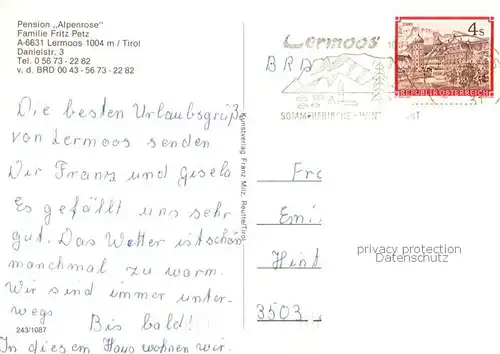 Pension „Alpenrose"
Familie Fritz Petz
A-6631 Lermoos 1004 m / Tirol
Danielstr. 3
Tel. 0 56 73 - 22 82
v. d. BRD 00 43 - 56 73 - 22 82
Die besten Urlaubsgrüß
von Lermoos senden
Dir Franz und Gisela
Es gefällt uns sehr
gut. Das Wetter ist schön
manchmal zu warm.
Wir sind immer unter-
wegs Bis bald!
243/1087
In diesem Haus wohnen wir.
Kunstverlag Franz Milz, Reutte/Tirol
Lermoos
BRD
4 S
REPUBLIK ÖSTERREICH
SOMMERFRISCHE - WINT
Fra
Emi
Hint
3503
privacy protection
Datenschutz